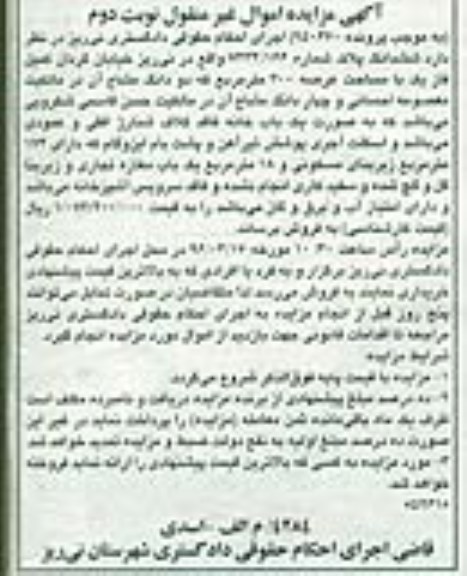 آگهی مزایده اموال غیر منقول نوبت دوم
(به موجب پرونده اجرای احکام حقوقی دادگستری نی‌ریز در نظر
دارد ششدانگ پلاک شماره واقع در نی‌ریز خیابان
با مساحت عرصه ۳۰۰ مترمربع که دو دانگ مشاع آن در مالکیت
معصومه و چهار دانگ مشاع آن در مالکیت حسن قاسمی
میباشد که به صورت یک باب خانه فاقد کلاف شناژ افقی و عمودی
میباشد و اسکلت آجری پوشش تیرآهن و پشت بام ایزوگام که دارای
مترمربع زیربنای مسکونی و ۱۸ مترمربع یک باب مغازه تجاری و زیربنا
گل و گچ شده و سفید کاری انجام نشده و فاقد سرویس آشپزخانه می‌باشد
و دارای امتیاز آب و برق و گاز می‌باشد را به قیمت ریال
(قیمت کارشناسی) به فروش برساند.
مزایده رأس ساعت ۱۰:۳۰ مورخه در محل اجرای احکام حقوقی
دادگستری نی‌ریز برگزار و به فرد یا افرادی که به بالاترین قیمت پیشنهادی
خریداری نمایند به فروش می‌رسد لذا متقاضیان در صورت تمایل می‌توانند
پنج روز قبل از انجام مزایده به اجرای احکام حقوقی دادگستری نی‌ریز
مراجعه تا اقدامات قانونی جهت بازدید از اموال مورد مزایده انجام گیرد.
شرایط مزایده:
۱- مزایده با قیمت پایه فوق‌الذکر شروع می‌گردد.
۲- ده درصد مبلغ پیشنهادی از برنده مزایده دریافت و نامبرده مکلف است
ظرف یک ماه باقی‌مانده ثمن معامله (مزایده) را پرداخت نماید در غیر این
صورت ده درصد مبلغ اولیه به نفع دولت ضبط و مزایده تجدید خواهد شد.
۳- مورد مزایده به کسی که بالاترین قیمت پیشنهادی را ارائه نماید فروخته
خواهد شد.
۴۲۸۴/ م الف - اسدی
قاضی اجرای احکام حقوقی دادگستری شهرستان نی‌ریز